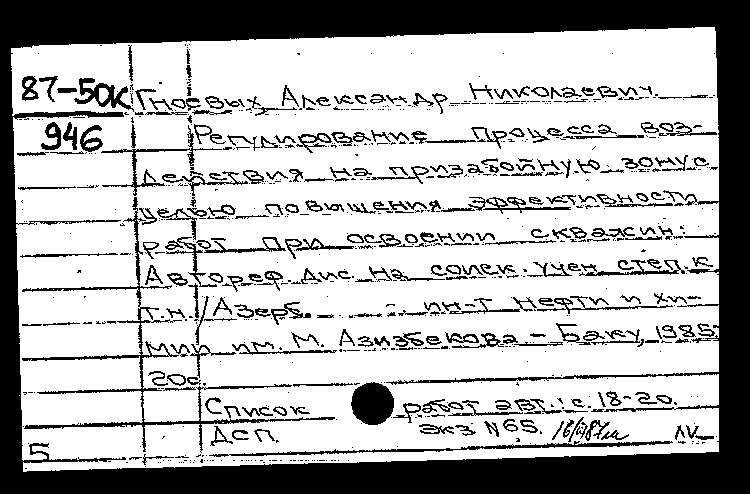 87-50к Гноевых Александр Николаевич.
946 Регулирование процесса воз-
действия на призабойную зону с
целью повышения эффективности
работ при освоении скважин:
Автореф. дис. на соиск. учен. степ. к.
т.н. / Азерб. ин-т нефти и хи-
мии им. М. Азизбекова - Баку, 1985.
20с.
Список работ авт.: с. 18-20.
ДСП. экз N 65.
5